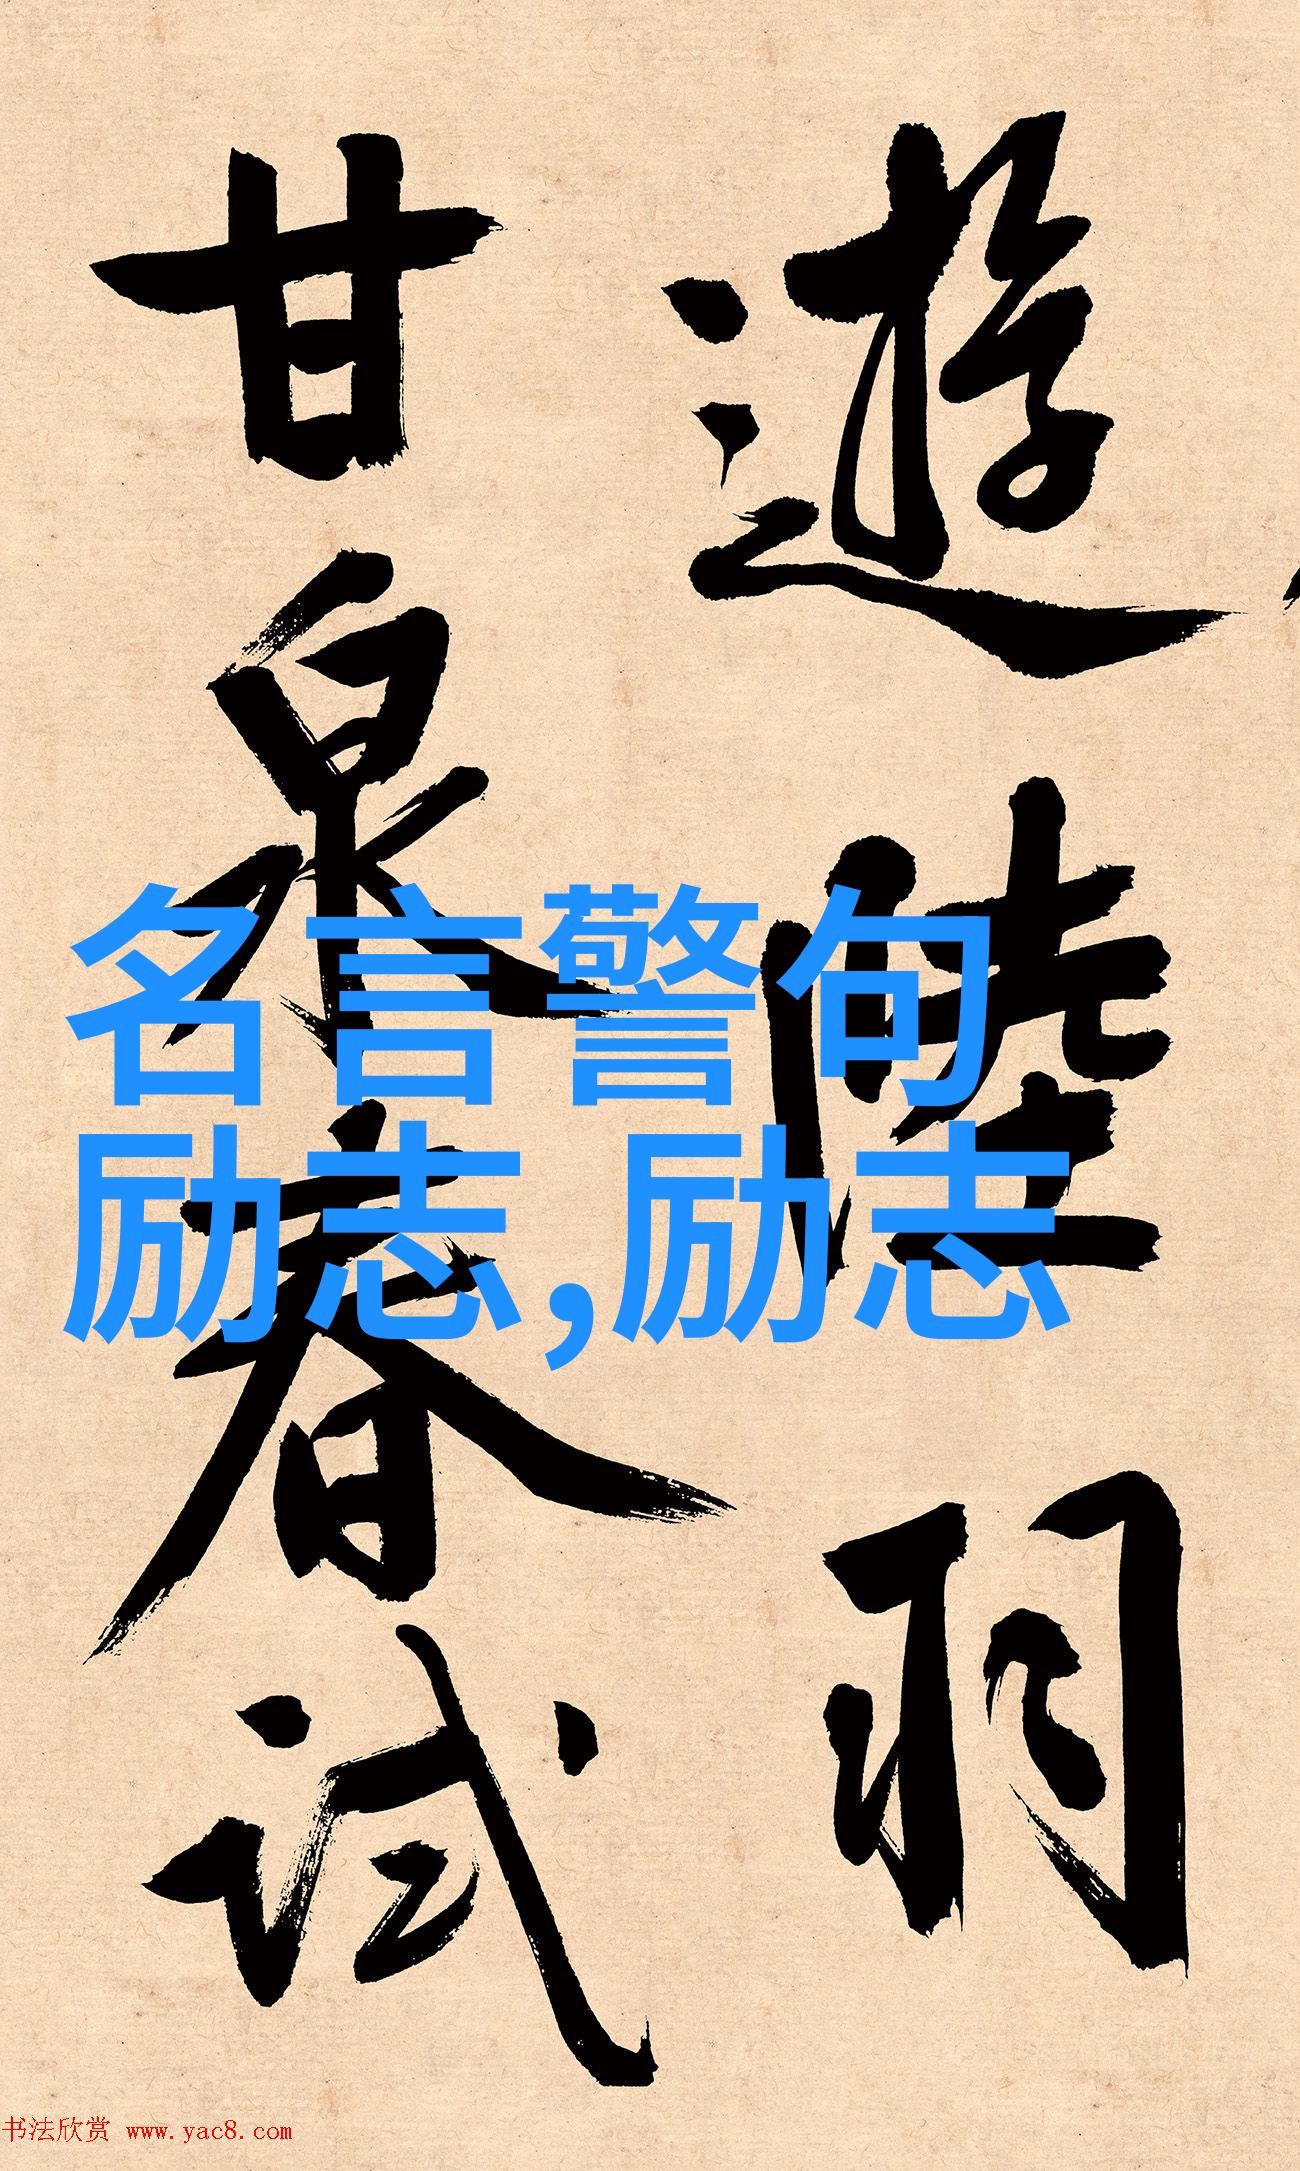 遊陸羽
甘泉春试
名言警句
励志,励志
书法欣赏 www.yac8.com